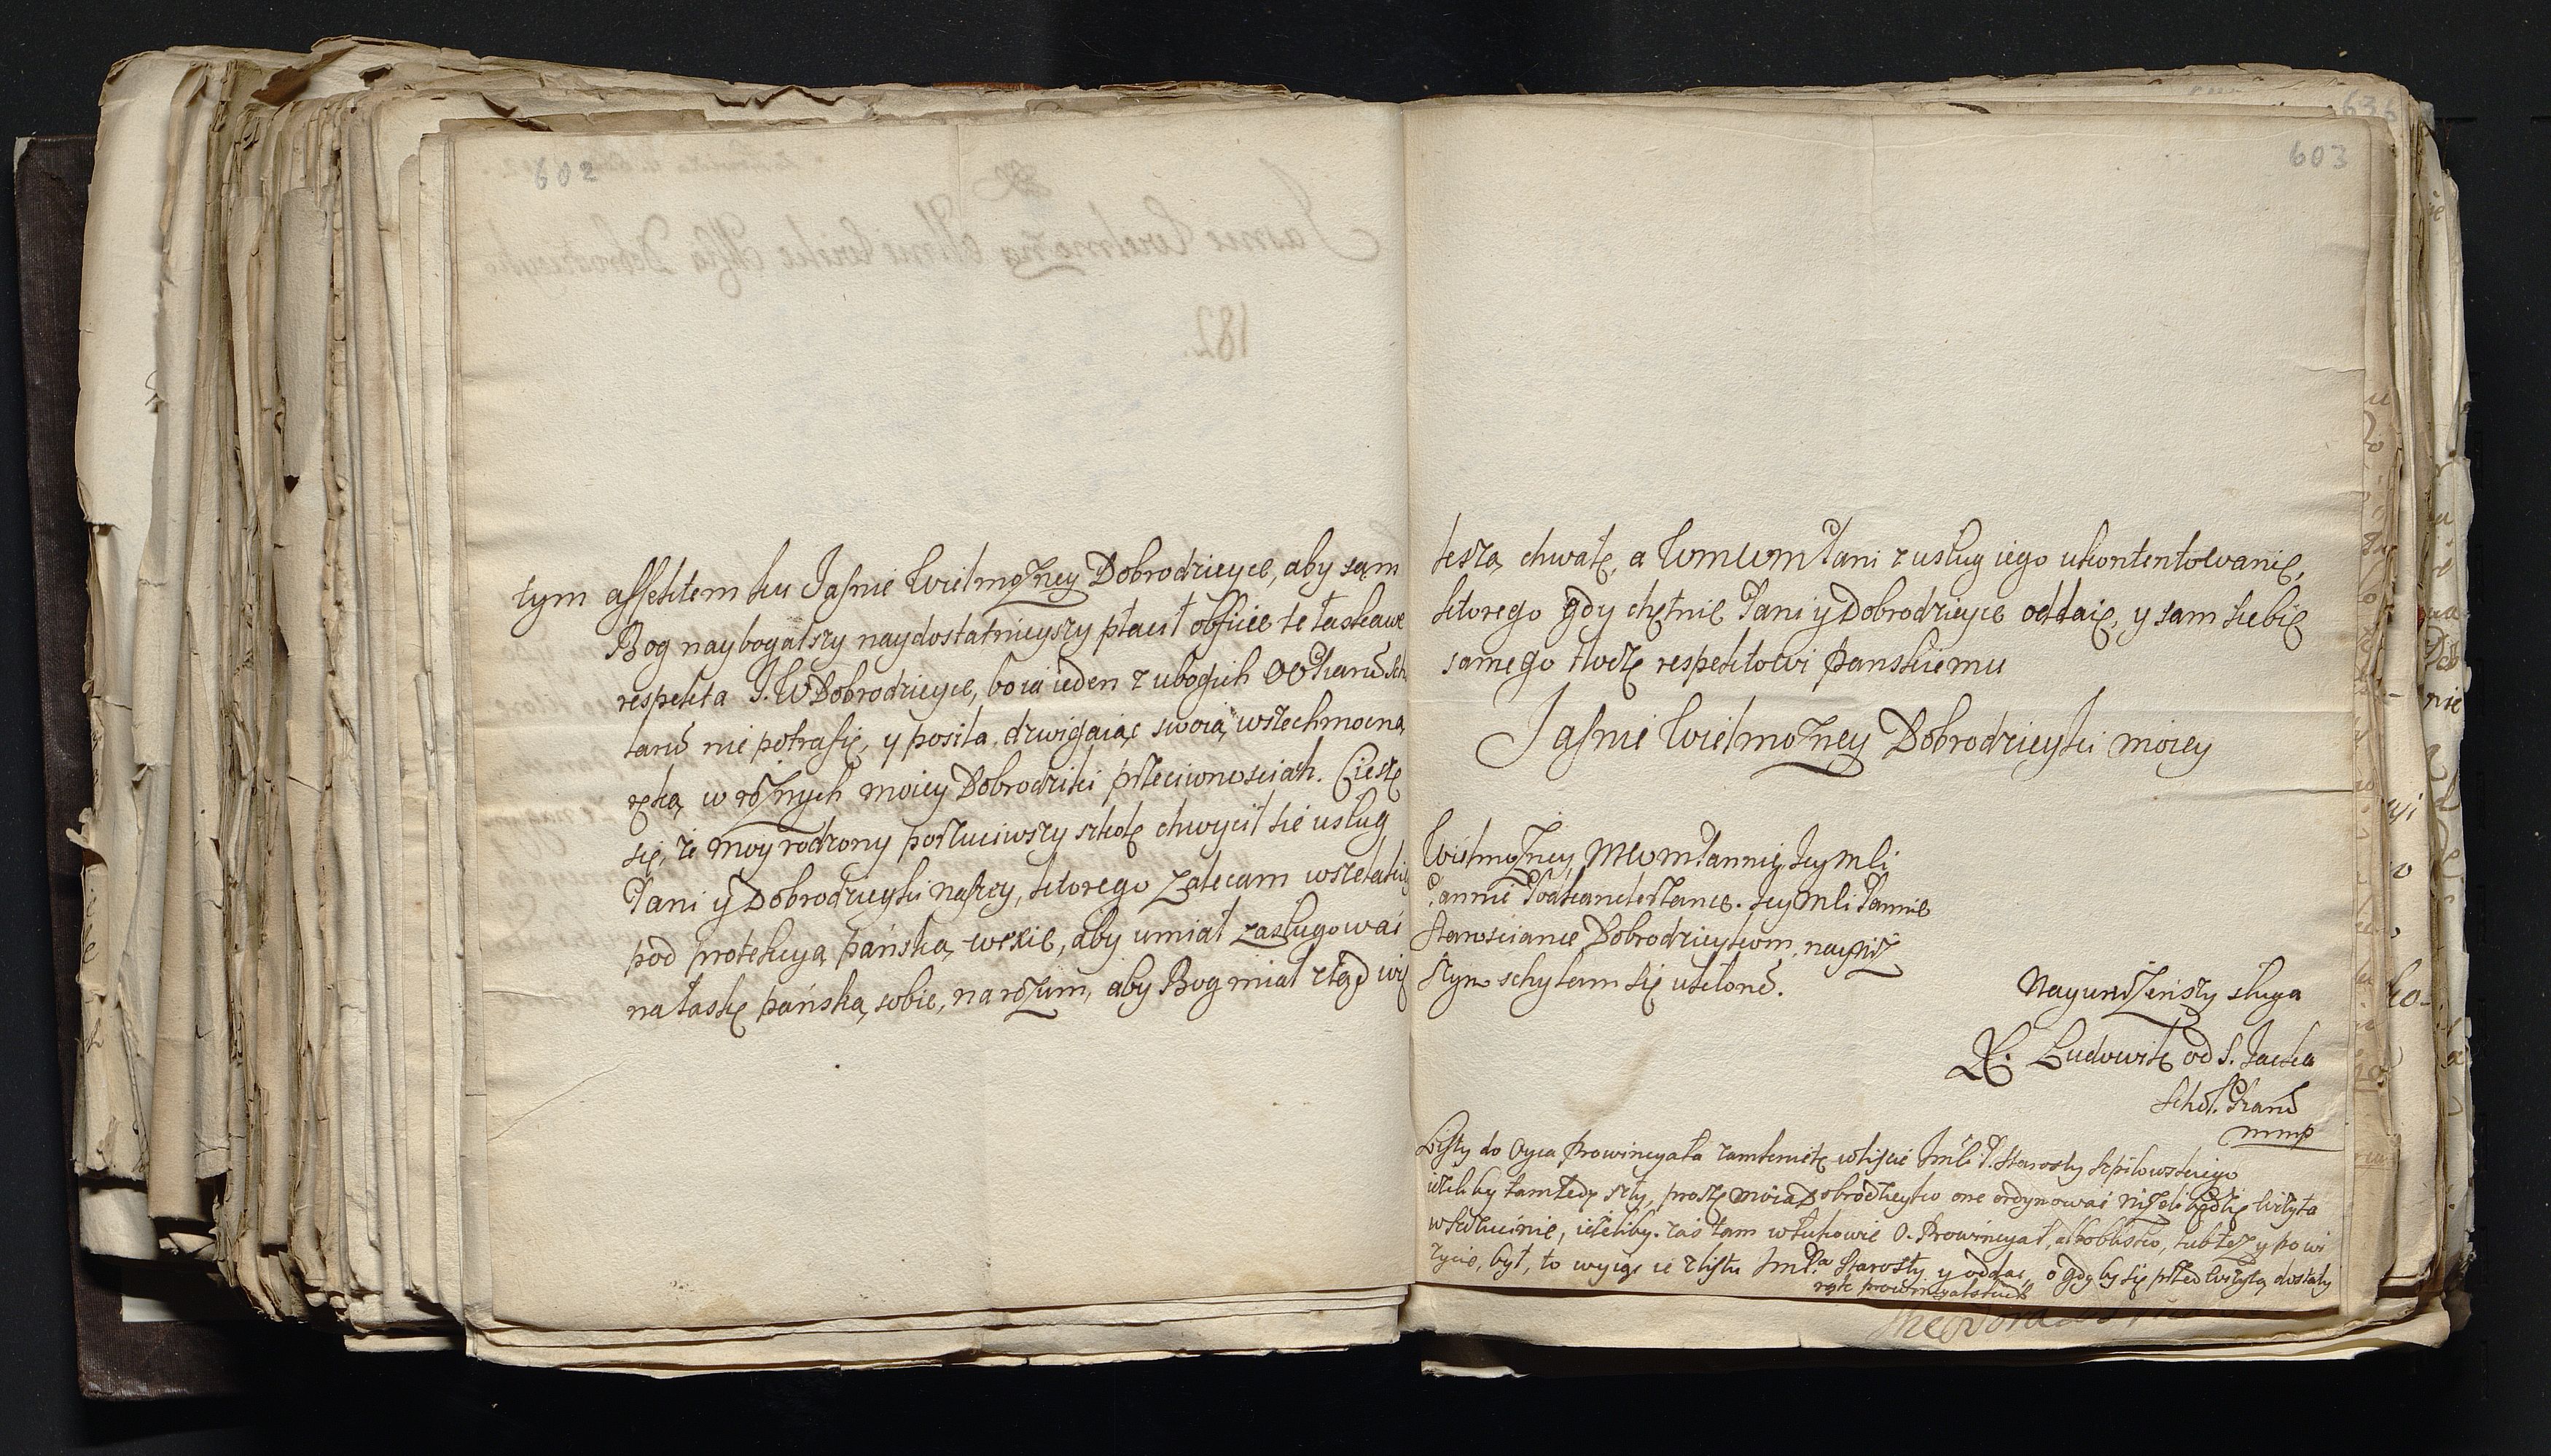 602
tym affektem ku Jaśnie Wielmożney Dobrodzieyce, aby sąm
Bog naybogatszy naydostatnieyszy płacił obficie te łaskawe
respekta J. W Dobrodzieyce, bo ia ieden z ubogich
nie potrafię, y posila, dzwigaiąc swoią wszechmocną
ręką w rożnych moiey Dobrodziki przeciwnosciach. Cieszę
się, że moy rodzony porzuciwszy szkołę chwycił się usług
Pani y Dobrodzieyki naszey, ktorego zalecam
pod protekcyą pańską wezcie, aby umiał zasługować
na łaskę pańską sobie, na rozum, aby Bog miał ztąd wię
603
kszą chwałę, a WMWM Pani z usług iego ukontentowanie,
ktorego gdy chętnie Pani y Dobrodzieyce oddaię, y sam siebie
samego tudzież respektowi Panskiemu
Jaśnie Wielmożney Dobrodzieyki moiey
Wielmożney MWM Pannie, Jey Mci
Pannie Podkanclerzance. Jey Mci Pannie
Starosciance Dobrodzieykom, nayniż
szym schylam się ukłonem.
Nayuniżenszy sługa
X. Ludowik od S. Jacka
Schol. Piarũ
mmp
Listy do Oyca Prowincyała zamknięte w liscie Jmci P. Starosty Szpilowskiego
ieżeliby tamtędy szły, proszę moia Dobrodzieyko one ordynować niżeli będzie wizyta
ieżeliby zas tam w Łukowie O. Prowincyał, albo blisko, lub też y po wi
zycie, był, to wyiąc ie z listu Jm Pa Starosty y oddac, o gdyby się przed wizytą dostały
ręk prowincyalskich